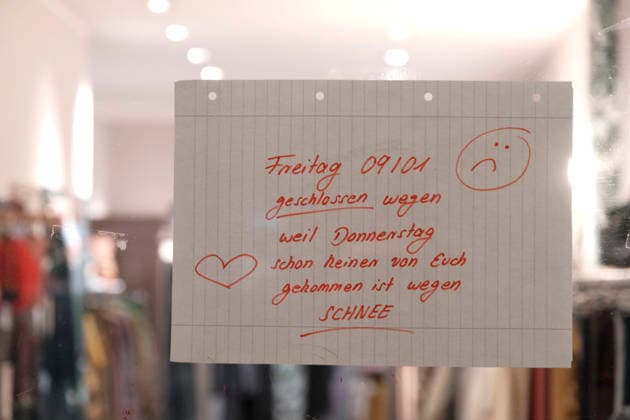 Freitag 09/01
geschlossen wegen
weil Donnerstag
schon keinen von Euch
gekommen ist wegen
SCHNEE